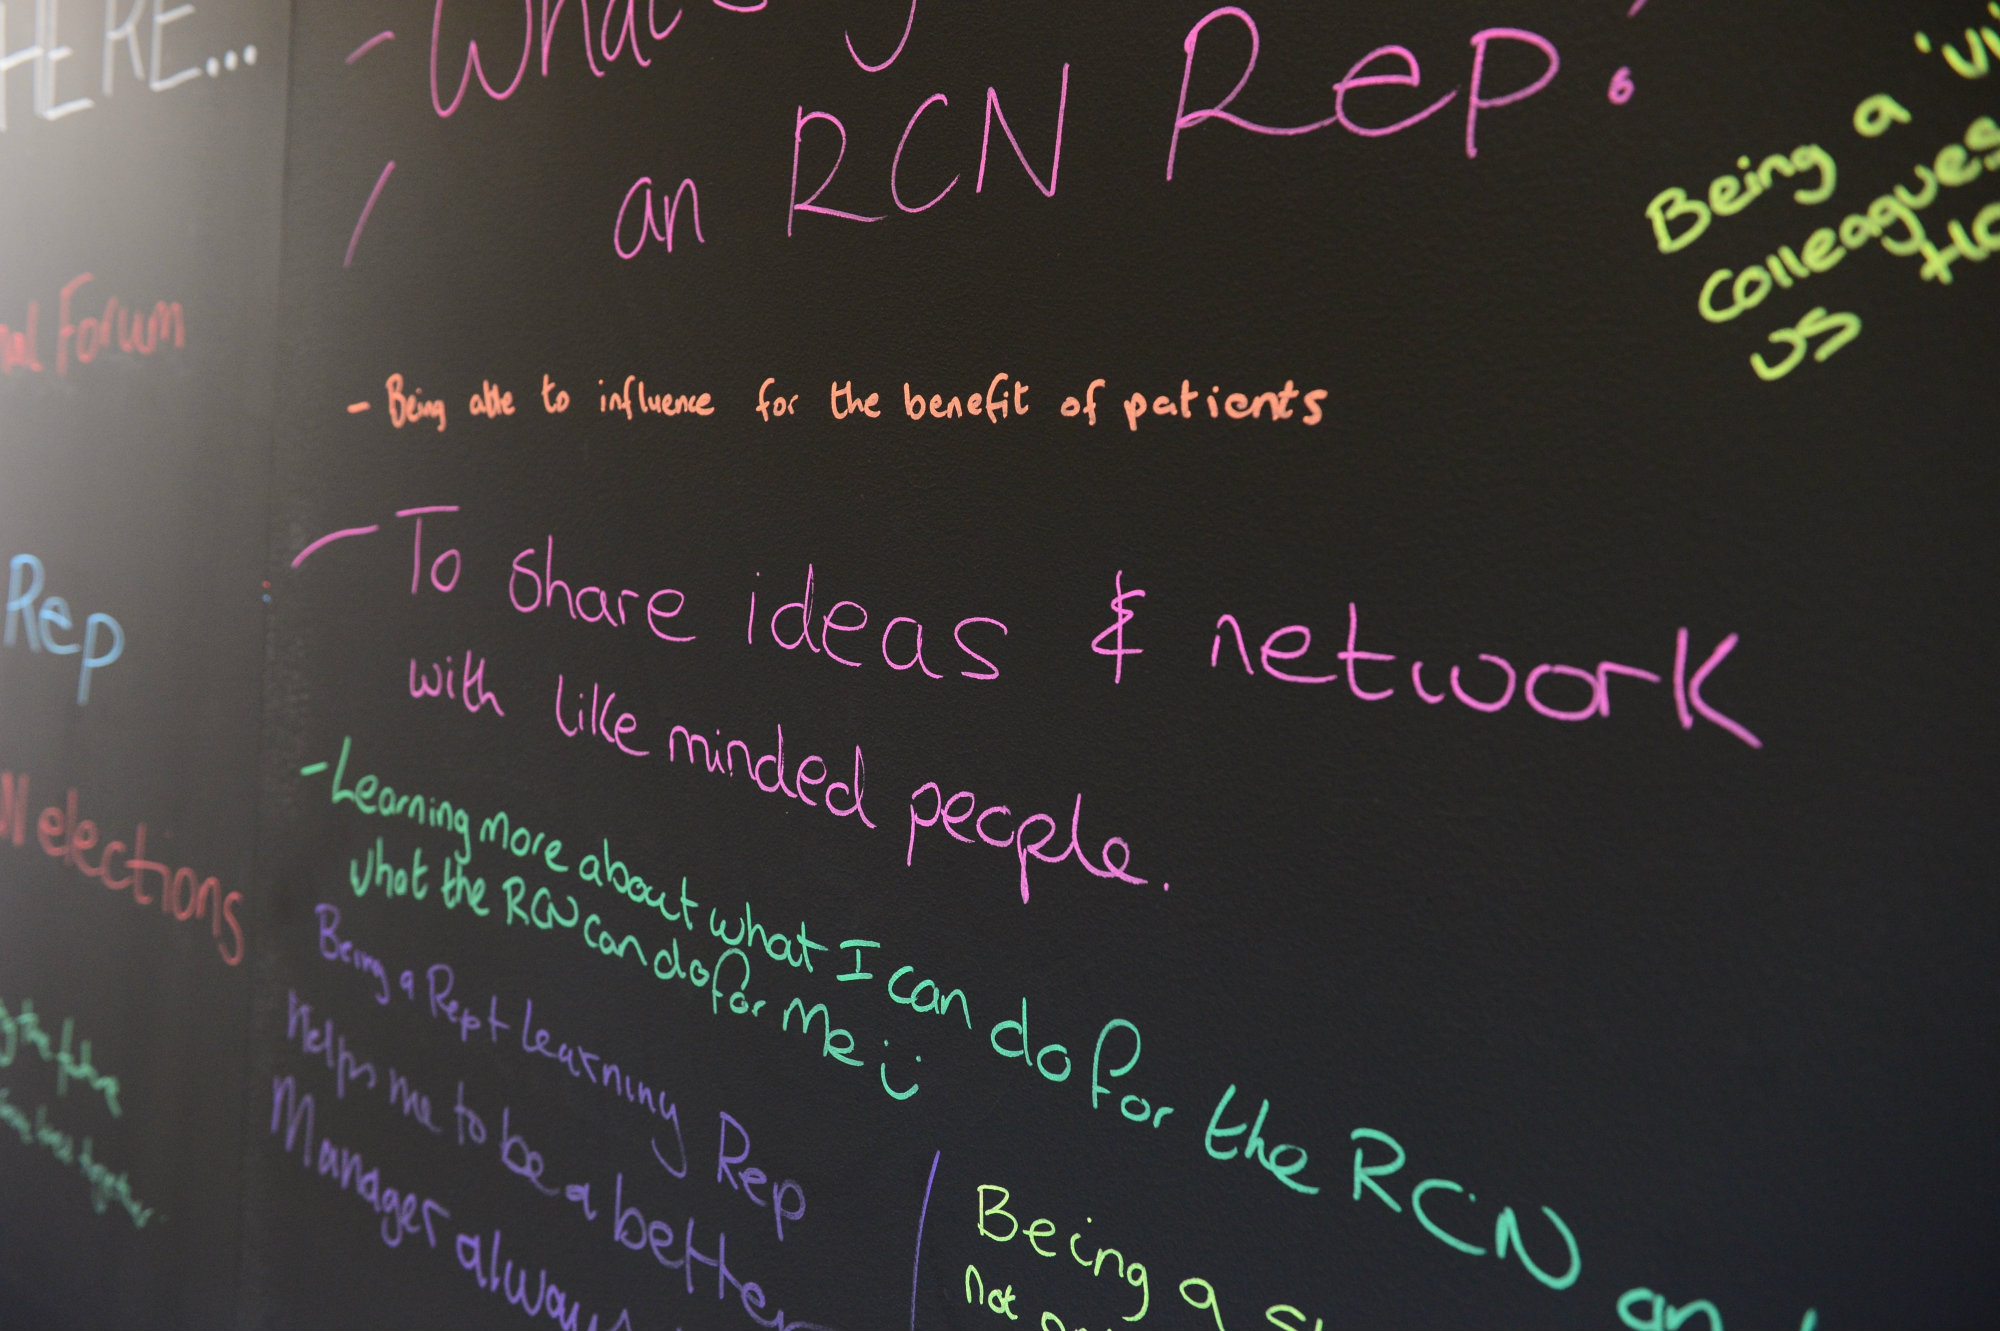 HERE...
Forum
Rep
elections
the future
together
- What's
an RCN Rep?
- Being able to influence for the benefit of patients
- To share ideas & network
with like minded people.
- Learning more about what I can do for the RCN and
what the RCN can do for me
Being a Rep + Learning Rep
Helps me to be a better
Manager always
Being a
Not
Being a
colleagues
us